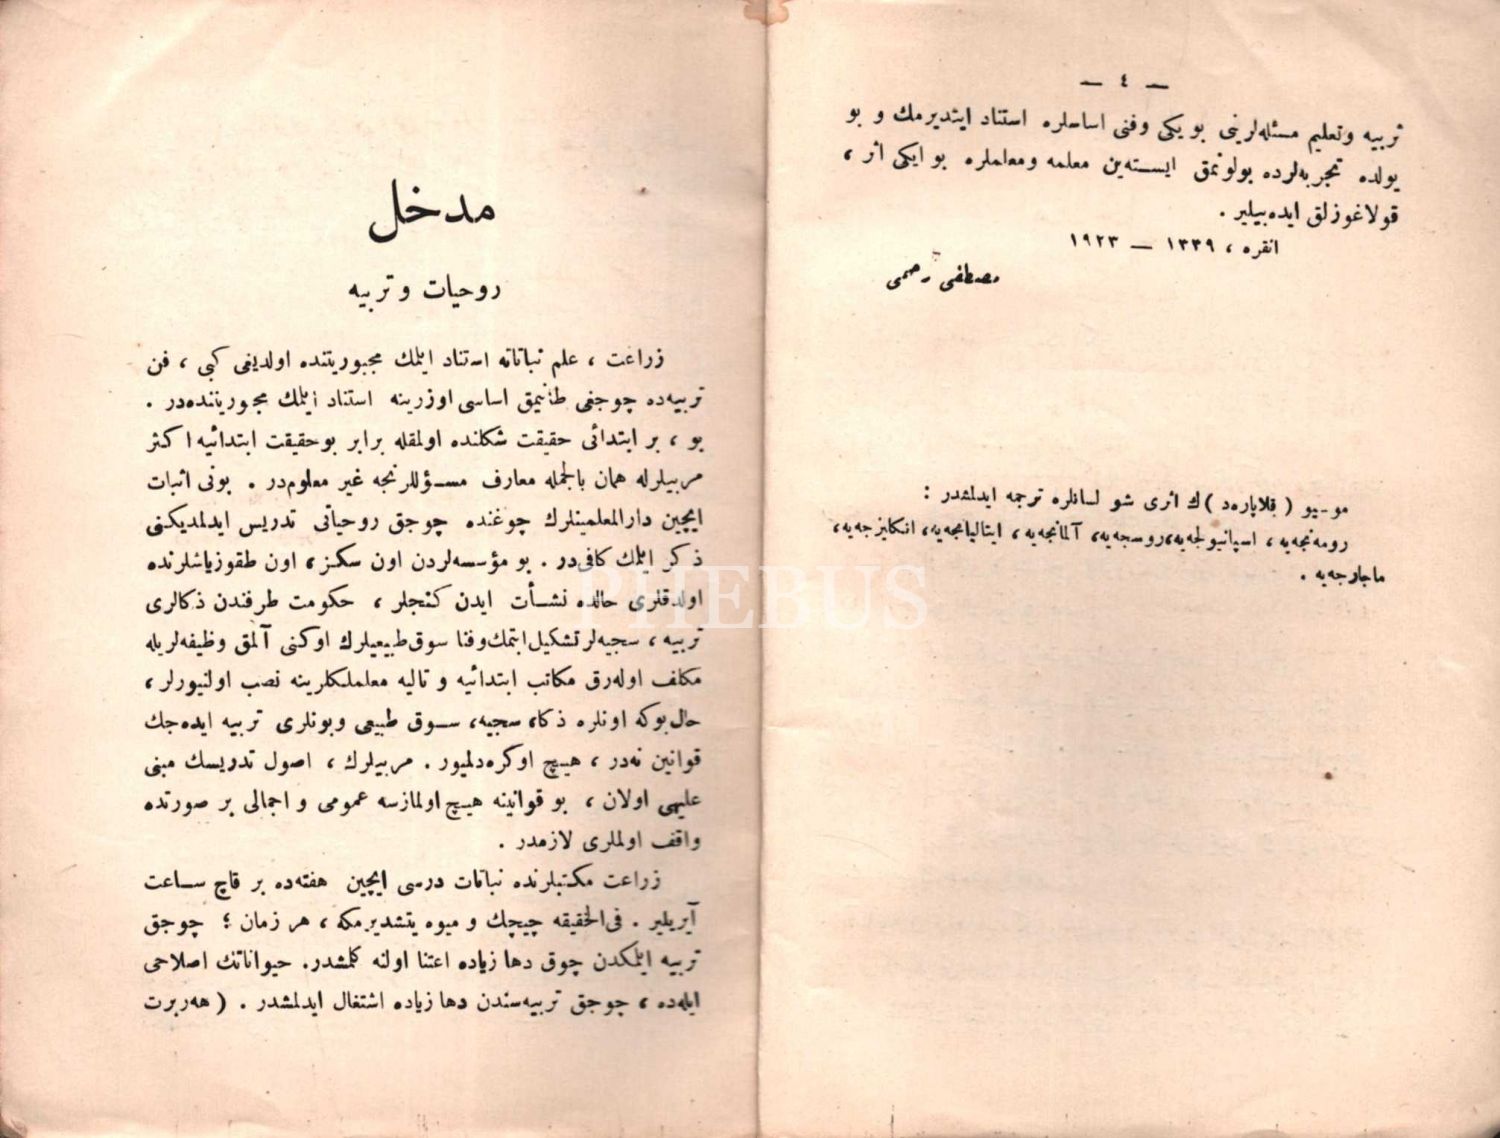 — ٤ —
تربیه وتعلیم مسئله‌لرینی بو یکی وفنی اساسلره استناد ایتدیرمك و بو
یولده تجربه‌لرده بولونمق ایسته‌ین معلمه ومعلملره بو ایکی اثر ،
قولاغوزلق ایده‌بیلیر .
انقره ، ١٣٣٩ — ١٩٢٣
مصطفی رحمی
موسیو ( قلاپاره‌د )ك اثری شو لسانلره ترجمه ایدلمشدر :
رومه‌نجه‌یه ، اسپانیولجه‌یه،روسجه‌یه، آلمانجه‌یه ، ایتالیانجه‌یه، انكلیزجه‌یه،
ماجارجه‌یه .
مدخل
روحیات و تربیه
زراعت ، علم نباتاته استناد ایتمك مجبوریتنده اولدیغی کبی ، فن
تربیه‌ده چوجغی طانیمق اساسی اوزرینه استناد ایتمك مجبوریتنده‌در .
بو ، بر ابتدائی حقیقت شکلنده اولمقله برابر بوحقیقت ابتدائیه اکثر
مربیلرله همان بالجمله معارف مسؤللرنجه غیر معلوم‌در . بونی اثبات
ایچین دارالمعلمینلرك چوغنده چوجق روحیاتی تدریس ایدلمدیکنی
ذکر ایتمك کافی‌در . بو مؤسسه‌لردن اون سکز ، اون طقوزیاشلرنده
اولدقلری حالده نشأت ایدن کنجلر ، حکومت طرفندن ذکالری
تربیه ، سجیه‌لرتشکیل ایتمك‌وفنا سوق‌طبیعیلرك اوکنی آلمق وظیفه‌لریله
مکلف اوله‌رق مکاتب ابتدائیه و تالیه معلملکلرینه نصب اولنیورلر ،
حال‌بوکه اونلره ذکا، سجیه، سوق طبیعی وبونلری تربیه ایده‌جك
قوانین نه‌در ، هیچ اوکره‌دلمیور . مربیلرك ، اصول تدریسك مبنی
علیهی اولان ، بو قوانینه هیچ اولمازسه عمومی و اجمالی بر صورتده
واقف اولملری لازمدر .
زراعت مکتبلرنده نباتات درسی ایچین هفته‌ده بر قاچ ساعت
آیریلیر . فی‌الحقیقه چیچك و میوه یتشدیرمکه ، هر زمان ؛ چوجق
تربیه ایتمکدن چوق دها زیاده اعتنا اولنه کلمشدر. حیواناتك اصلاحی
ایله‌ده ، چوجق تربیه‌سندن دها زیاده اشتغال ایدلمشدر . ( هه‌ربرت
PHEBUS